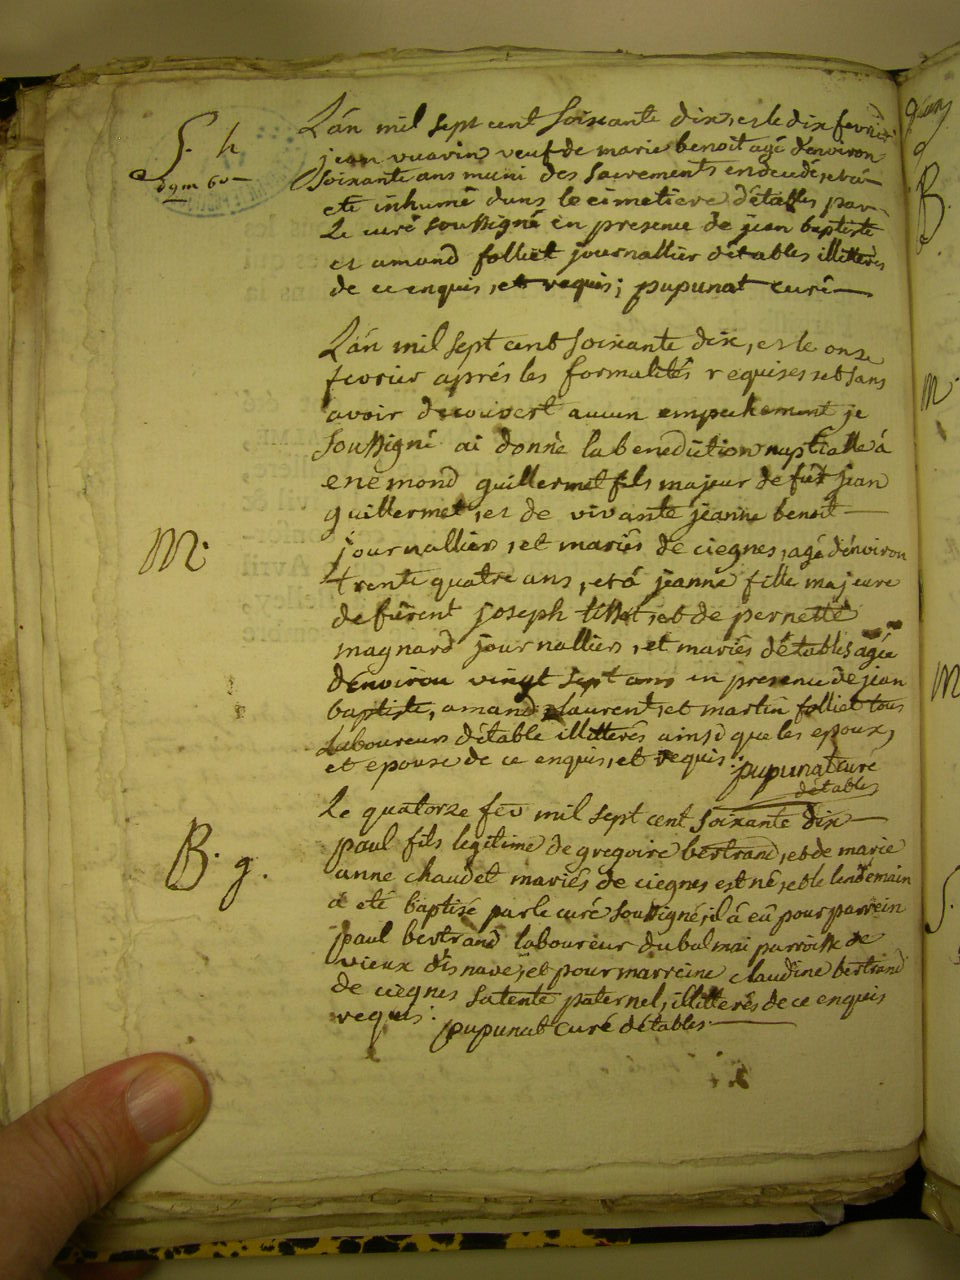 S. h
agm 60
L'án mil sept cent soixante dix, et le dix fevrier
jean vuarin veuf de marie benoit agé d'environ
soixante ans muni des sacrements
eté inhumé dans le cimetiere d'étables par
le curé soussigné en presence de jean baptiste
et amand folliet journallier d'étables illitterés
de ce enquis, et requis; pupunat curé
L'án mil sept cent soixante dix, et le onze
fevrier aprés les formalités requises et sans
avoir decouvert aucun empechement je
soussigné ai donné la benediction nuptialle á
enemond guillermet fils majeur de fût jean
guillermet, et de vivante jeanne benoit
M.
journalliers, et mariés de ciegnes, agé d'environ
trente quatre ans, et á jeanne fille majeure
de fûrent joseph et de pernette
magnard journalliers, et mariés d'étables agée
d'environ vingt sept ans en presence de jean
baptiste, amand, laurent, et martin folliet tous
laboureurs d'étable illitterés ainsi que les epoux,
et epouse de ce enquis, et requis: pupunat curé
d'étables
Le quatorze fev mil sept cent soixante dix
B. g.
paul fils legitime de gregoire bertrand, et de marie
anne chaudet mariés de ciegnes est né, et le lendemain
á eté baptisé par le curé soussigné, il á eû pour parrein
paul bertrand laboureur du balmai parroisse de
vieux d'isnave, et pour marreine claudine bertrand
de ciegnes sa tente paternel, illitterés de ce enquis
requis: pupunat curé d'étables